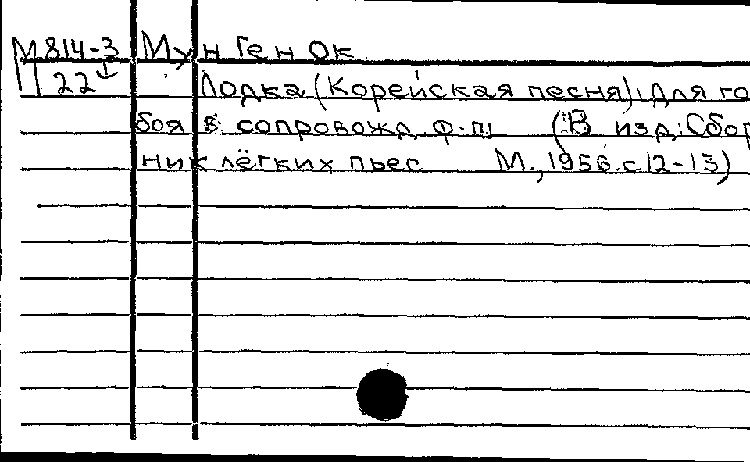 М814-3 Мун Ген Ок
П22
Лодка (Корейская песня). Для го
боя в сопровожд. ф-п. (В изд.: Сбор
ник лёгких пьес М., 1956. с.12-13)